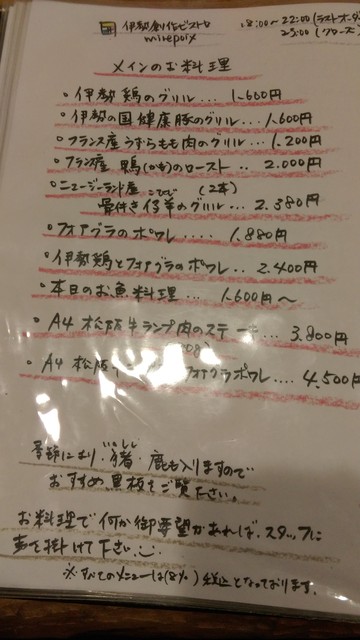 伊勢創作ビストロ
mirepoix
18:00〜22:00(ラストオーダー
23:00(クローズ)
メインのお料理
・伊勢鶏のグリル... 1.600円
・伊勢の国健康豚のグリル... 1.600円
・フランス産うずらもも肉のグリル... 1.200円
・フランス産 鴨(かも)のロースト.. 2.000円
・ニュージーランド産 こひつじ (2本)
骨付き仔羊のグルル... 2.380円
・フォアグラのポワレ.... 1.880円
・伊勢鶏とフォアグラのポワレ... 2.400円
・本日のお魚料理... 1.600円〜
・A4 松阪牛ランプ肉のステーキ... 3.800円
・A4 松阪 フォアグラポワレ.... 4.500円
季節により、猪いのしし・鹿も入りますので
おすすめ黒板をご覧下さい。
お料理で何か御要望があれば、スタッフに
声を掛けて下さい
※すべてのメニューは(8%)税込となっております。